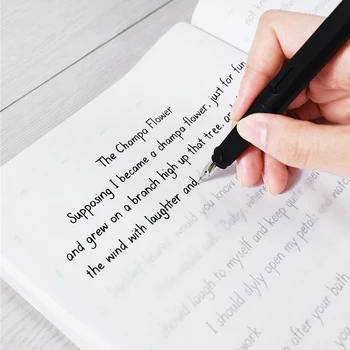 The Champa Flower
Supposing I became a champa flower, just for fun
and grew on a branch high up that tree, and
the wind with laughter and
would you know
Baby, where
should laugh to myself and keep
I should slyly open my petals and
after your bath
work